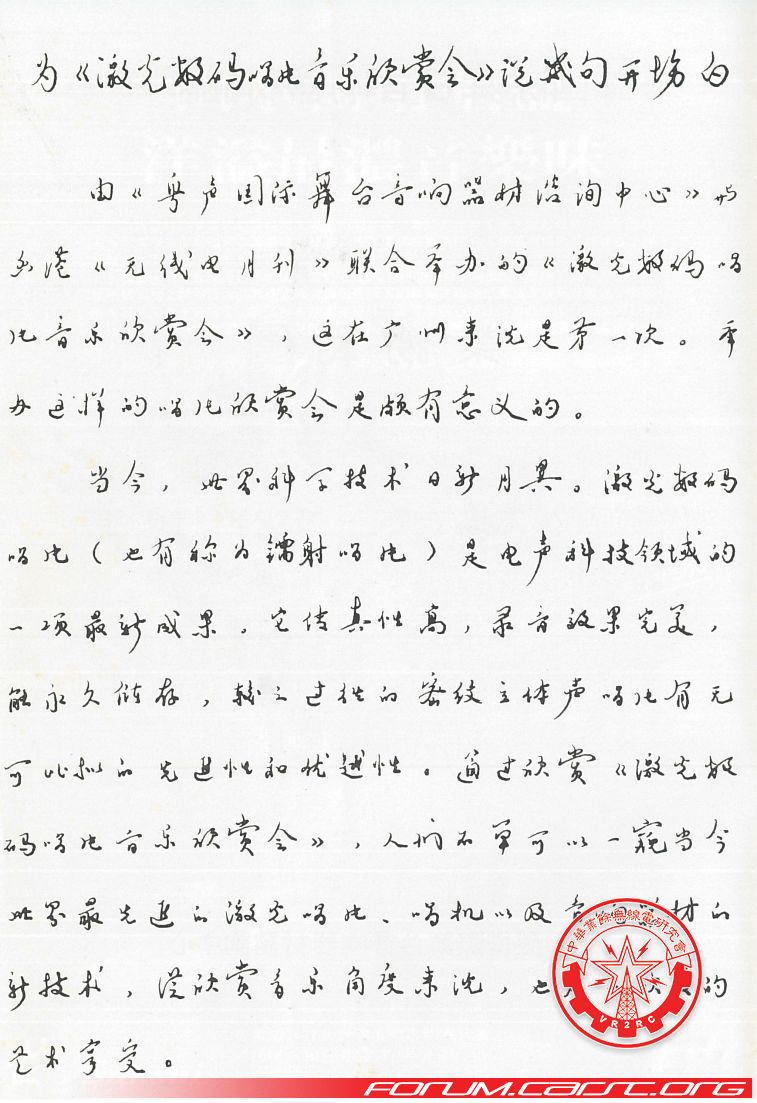 为《激光数码唱片音乐欣赏会》说几句开场白
由《粤声国际舞台音响器材咨询中心》与
香港《无线电月刊》联合举办的《激光数码唱
片音乐欣赏会》，这在广州来说是第一次。举
办这样的唱片欣赏会是颇有意义的。
当今，世界科学技术日新月异。激光数码
唱片（也有称为镭射唱片）是电声科技领域的
一项最新成果。它传真性高，录音效果完美，
能永久储存，较之过往的密纹立体声唱片有无
可比拟的先进性和优越性。通过欣赏《激光数
码唱片音乐欣赏会》，人们不单可以一窥当今
世界最先进的激光唱片、唱机以及音响器材的
新技术，从欣赏音乐角度来说，也的
艺术享受。
中華業餘無線電研究會
VR2RC
FORUM.CARST.ORG